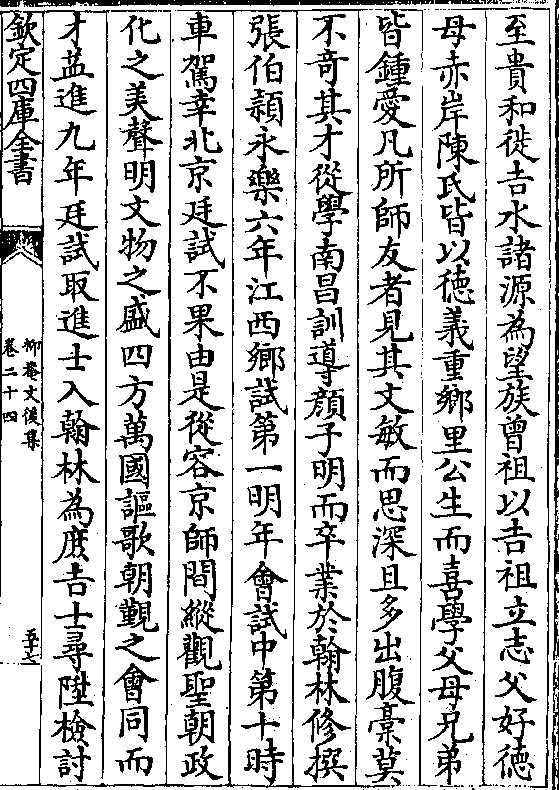 至貴和徙吉水諸源為望族曾祖以吉祖立志父好德
母赤岸陳氏皆以德義重鄉里公生而喜學父母兄弟
皆鍾愛凡所師友者見其文敏而思深且多出腹藁莫
不竒其才從學南昌訓導顔子明而卒業於翰林修撰
張伯頴永樂六年江西鄉試第一明年會試中第十時
車駕幸北京廷試不果由是從容京師間縱觀聖朝政
化之美聲明文物之盛四方萬國謳歌朝覲之會同而
才益進九年廷試取進士入翰林為庶吉士尋陞檢討
欽定四庫全書
抑菴文後集
卷二十四